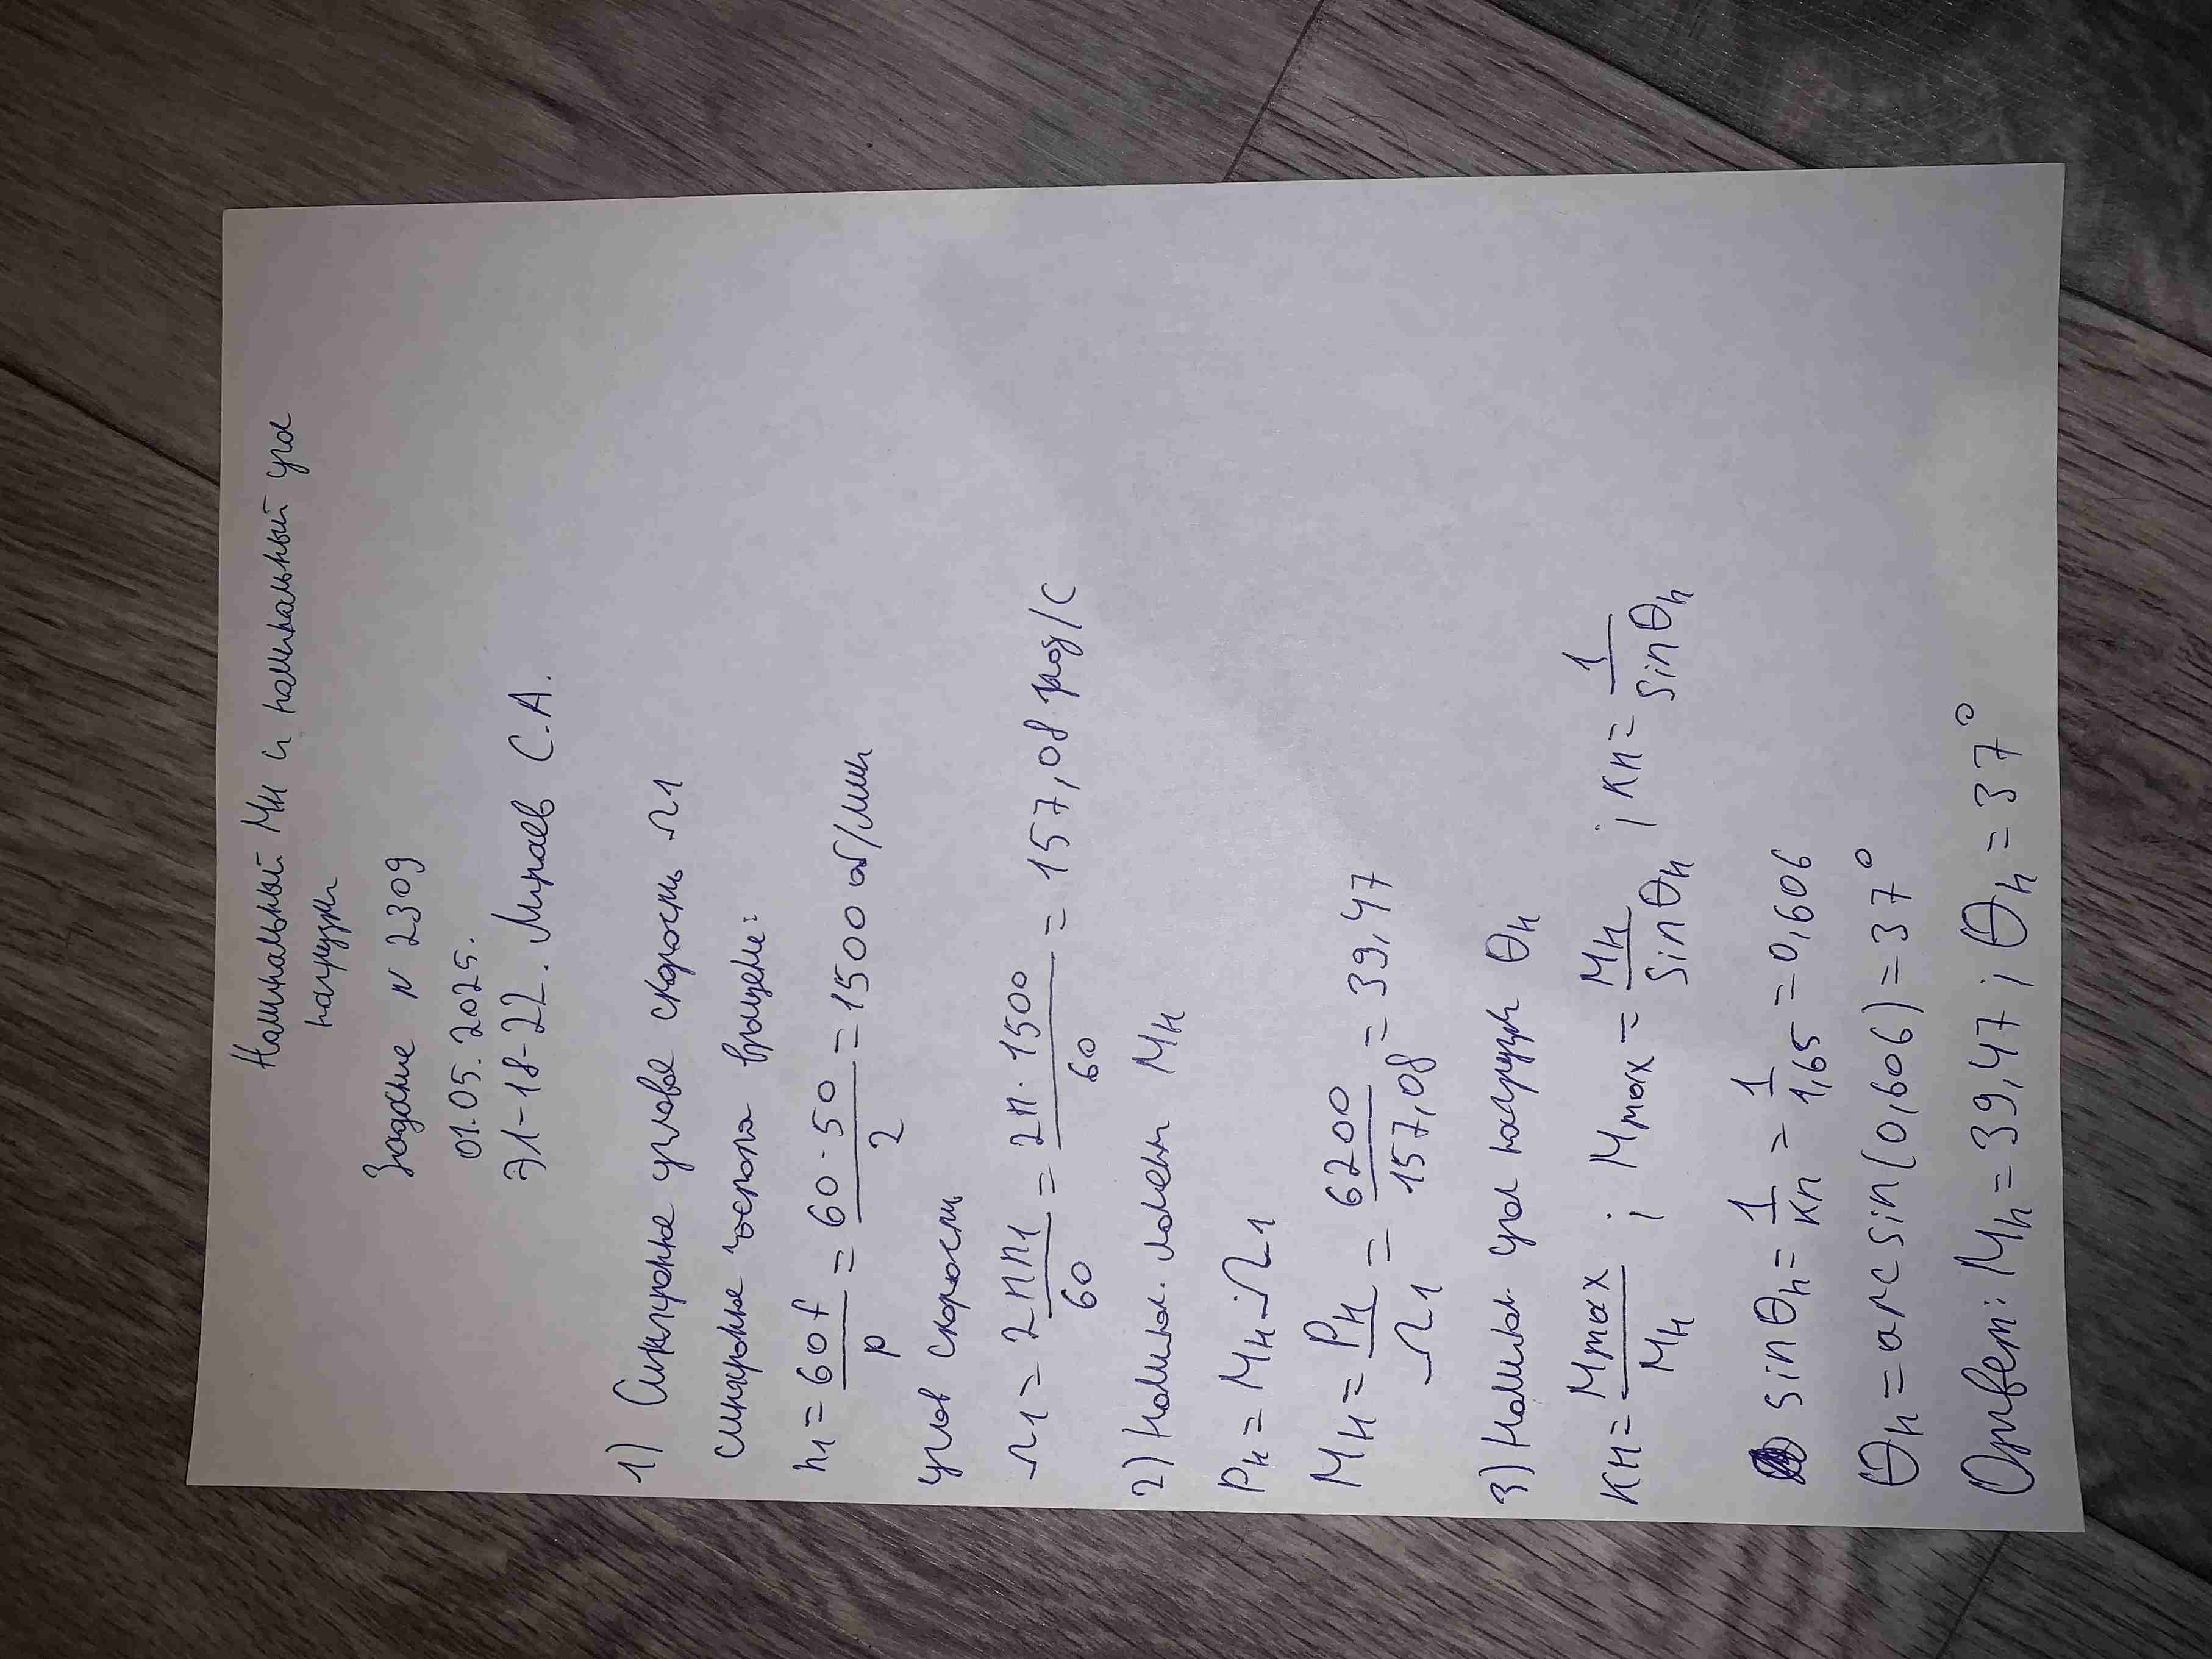 Номинальный Мн и номинальный угол
нагрузки
Задание N 2309
01.05.2025.
Э1-18-22. Мираев С.А.
1) Синхронное угловое скорость Ω1
синхронное частота вращение:
n1 = 60f/p = 60·50/2 = 1500 об/мин
углов скорости
Ω1 = 2πn1/60 = 2π·1500/60 = 157,08 рад/с
2) Номин. момент Мн
Pн = Мн·Ω1
Мн = Pн/Ω1 = 6200/157,08 = 39,47
3) Номин. угол нагрузки θн
Kн = Mmax/Mн ; Mmax = Mн/sinθн ; Kп = 1/sinθн
sinθн = 1/Kп = 1/1,65 = 0,606
θн = arcsin(0,606) = 37°
Ответ: Мн = 39,47 ; θн = 37°